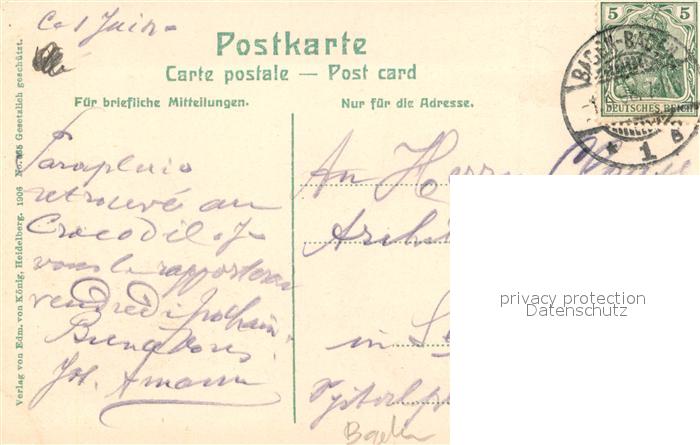 Ce 1 Juin
Postkarte
Carte postale — Post card
Für briefliche Mitteilungen.
Nur für die Adresse.
5 5
DEUTSCHES REICH
BADEN-BADEN
* 1
Parapluie
retrouvé au
Crocodil. Je
vous le rapporterai
vendredi prochain.
Jos. Amann
An Herrn
in
Baden
Verlag von Edm. von König, Heidelberg. 1906 Gesetzlich geschützt.
privacy protection
Datenschutz